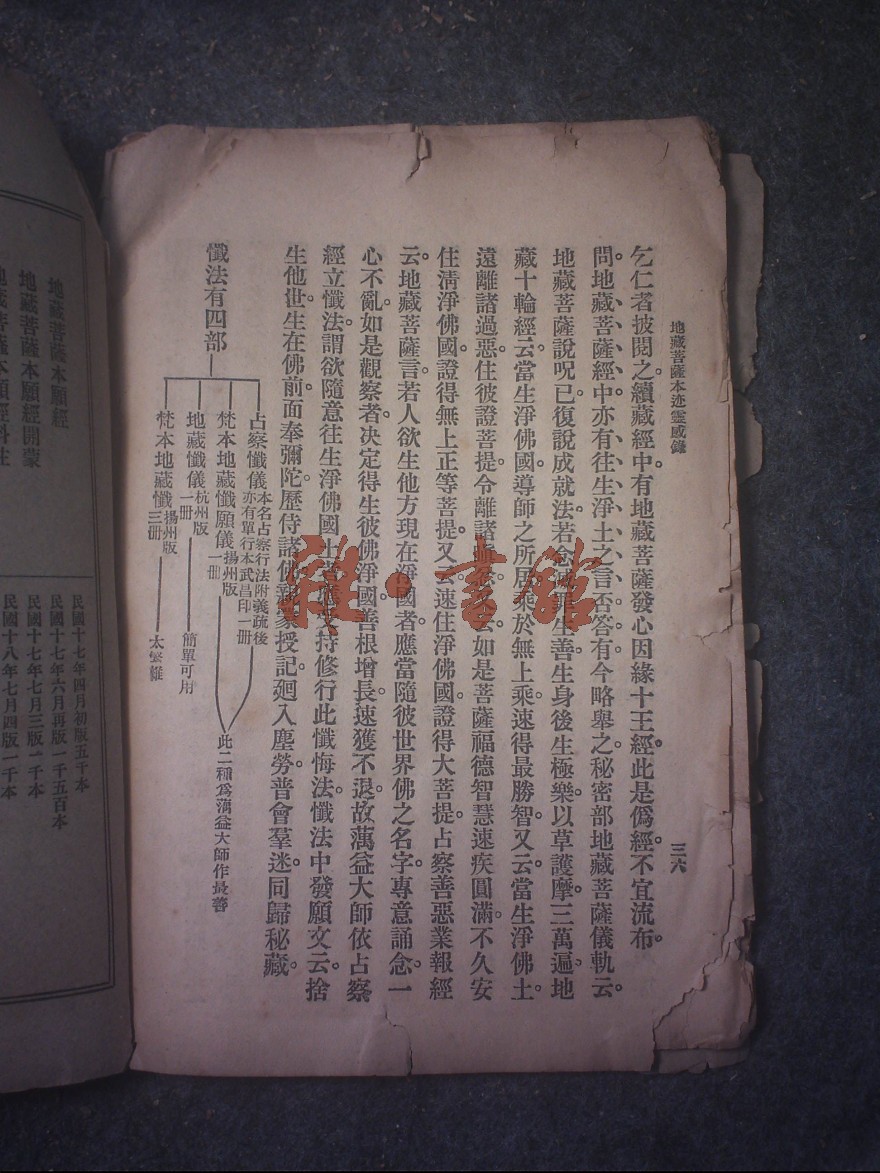 地藏菩薩本迹靈感錄
三六
乞仁者披閱之。續藏經中。有地藏菩薩發心因緣十王經。此是僞經。不宜流布。
問。地藏菩薩經中、亦有往生淨土之言否。答。有。今略舉之。秘密部地藏菩薩儀軌云。
地藏菩薩說呪已。復說成就法。若念滅罪生善。生身後生極樂。以草護摩三萬遍。地
藏十輪經云。當生淨佛國。導師之所居。乘於無上乘。速得最勝智。又云。當生淨佛土。
遠離諸過惡。住彼證菩提。令離諸
云。如是菩薩福德智慧速疾圓滿。不久安
住清淨佛國。證得無上正等菩提。又云。速住淨佛國。證得大菩提。占察善惡業報經
云。地藏菩薩言。若人欲生他方現在淨國者。應當隨彼世界佛之名字。專意誦念。一
心不亂。如是觀察者。決定得生彼佛淨國。善根增長。速獲不退。故蕅益大師依占察
經立懺法。謂欲隨意往生淨佛國土者。應受持修行此懺悔法。懺法中發願文云。捨
生他世。生在佛前。面奉彌陀。歷侍諸佛。親蒙授記。廻入塵勞。普會羣迷。同歸秘藏。
懺法有四部
占察懺儀 本名占察行法附義疏後
亦有單行本武昌印一冊
梵本地藏懺願儀 揚州版
一冊
此二種爲蕅益大師作最善
地藏懺儀 杭州版
一冊
簡單可用
梵本地藏懺 揚州版
三冊
太繁雜
段·書館
地藏菩薩本願經
地藏菩薩本願經開蒙
地藏菩薩本願經科注
民國十七年四月初版五千本
民國十七年六月再版一千五百本
民國十七年七月三版一千本
民國十八年七月四版一千本